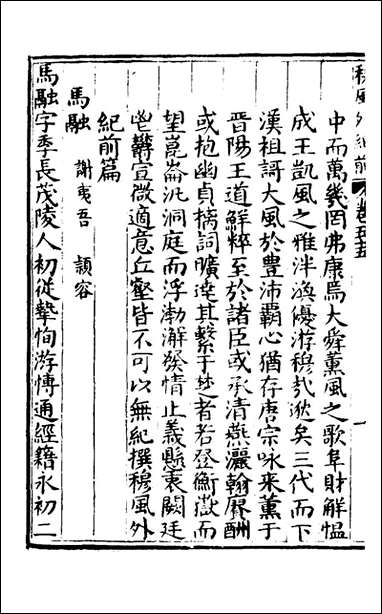 中而萬幾罔弗康焉大舜薰風之歌阜財解慍
成王凱風之雅泮渙優游穆哉逖矣三代而下
漢祖哥大風於豊沛覇心猶存唐宗咏來薰于
晉陽王道鮮粹至於諸臣或承清燕灑翰賡酬
或抱幽貞摛詞曠逸其繫于
者若登衡嶽而
望崑崙汎洞庭而浮渤澥發情止義懸衷闕廷
鬯欝宣微適意丘壑皆不可以無紀撰穆風外
紀前篇
馬融 謝夷吾 頴容
馬融字季長茂陵人初從摯恂游慱通經籍永初二